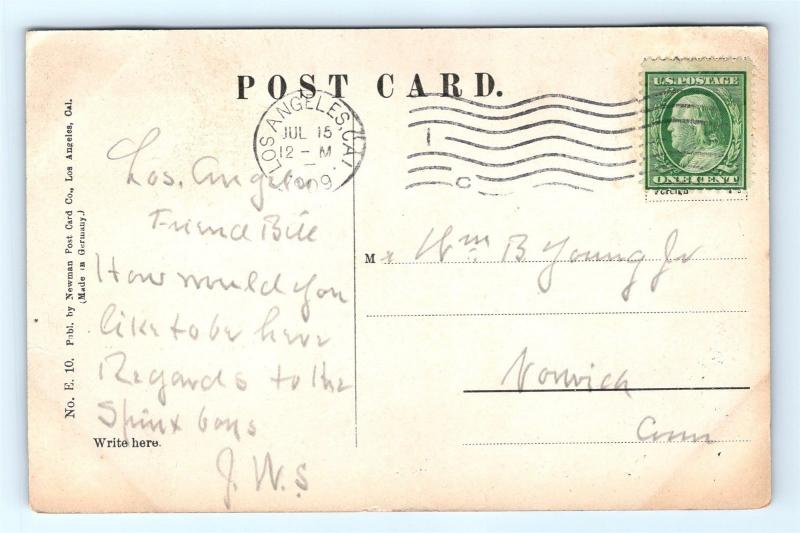 POST CARD.
No. E. 10. Publ. by Newman Post Card Co., Los Angeles, Cal.
(Made in Germany.)
LOS ANGELES, CAL.
JUL 15
12 - M
1909
U.S. POSTAGE
ONE CENT
Los. Angeles
Friend Bill
How would you
like to be here
Regards to the
Spinx boys
J. W. S
Write here.
Mr Wm B Young Jr
Norwich
Conn